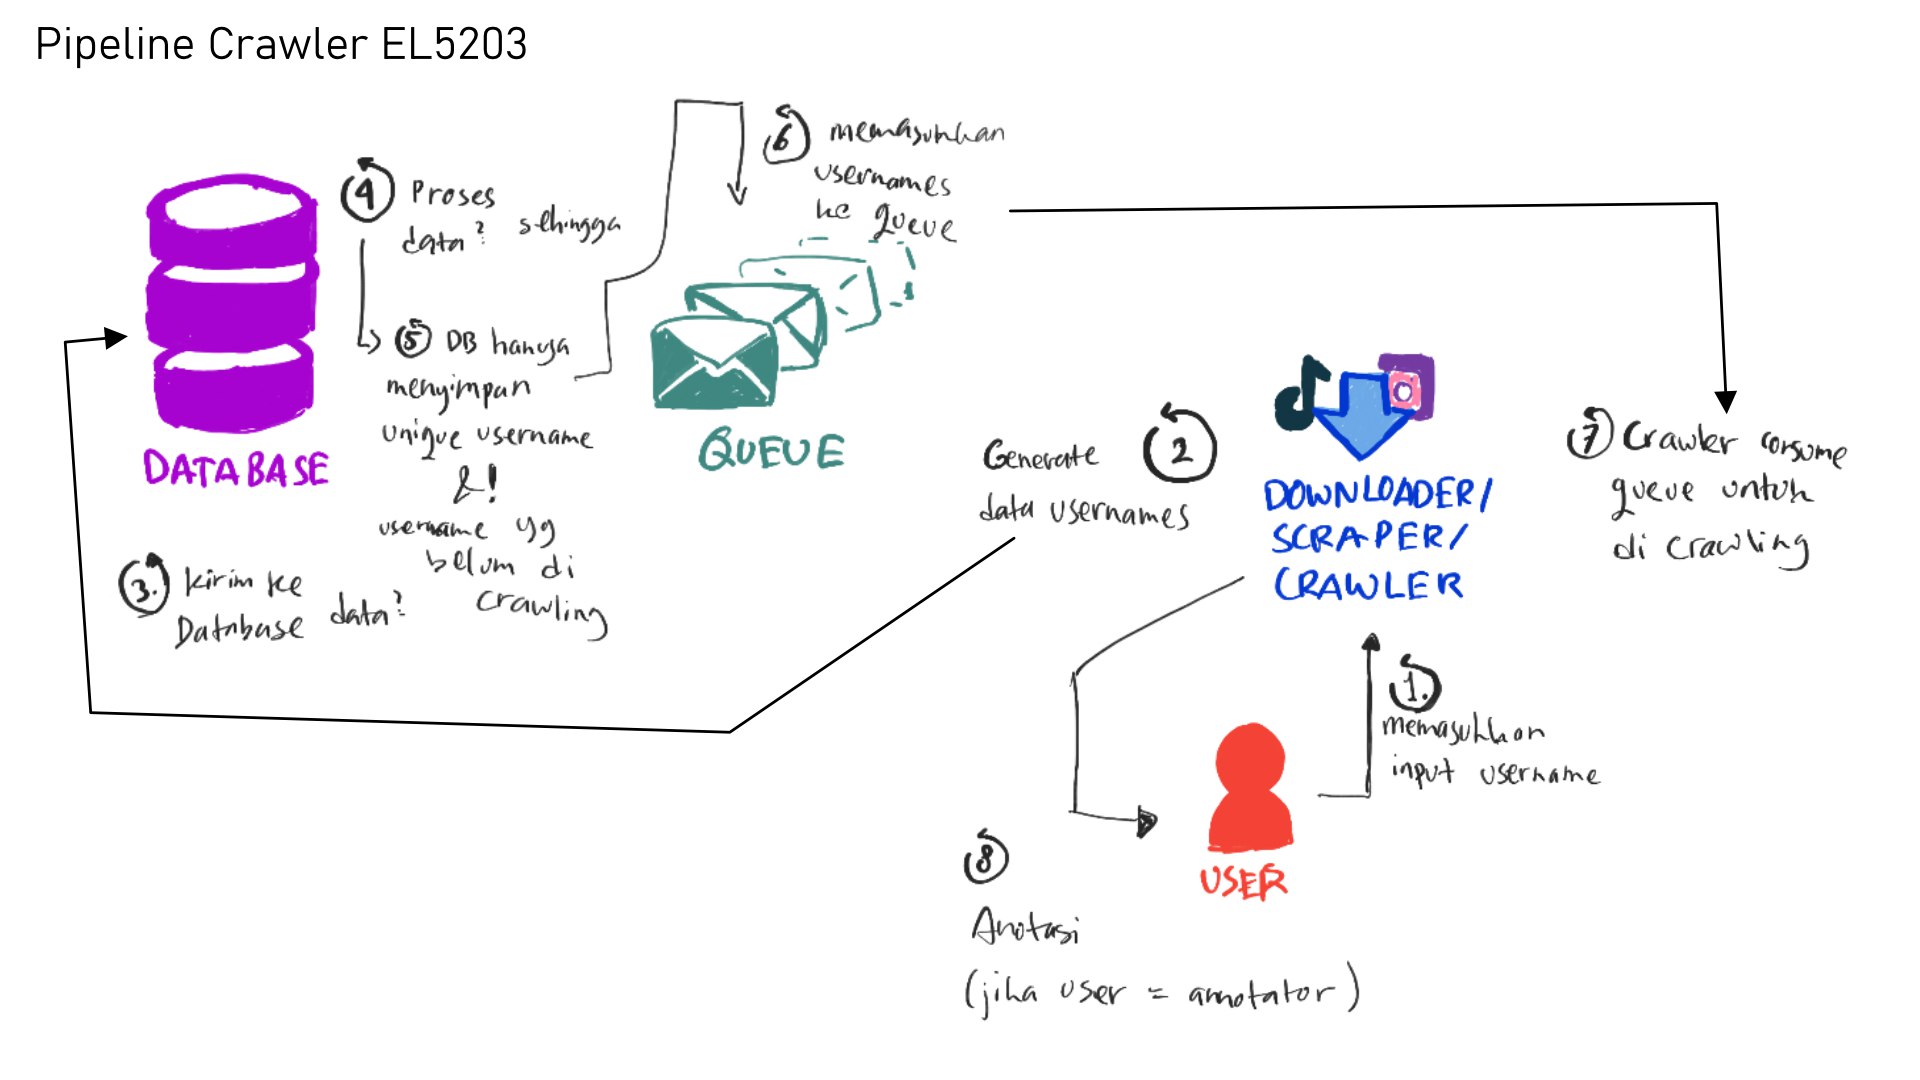 Pipeline Crawler EL5203
4 Proses
data² sehingga
5 DB hanya
menyimpan
unique username
&!
username yg
belum di
crawling
DATABASE
3. kirim ke
Database data²
6 memasukkan
usernames
ke queue
QUEUE
Generate 2
data usernames
DOWNLOADER/
SCRAPER/
CRAWLER
7 Crawler consume
queue untuk
di crawling
1.
memasukkan
input username
USER
8
Anotasi
(jika user = annotator)